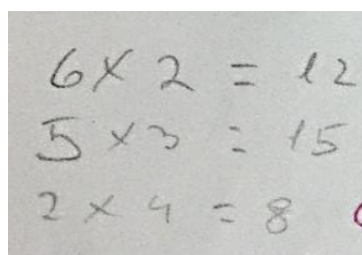 6 × 2 = 12
5 × 3 = 15
2 × 4 = 8